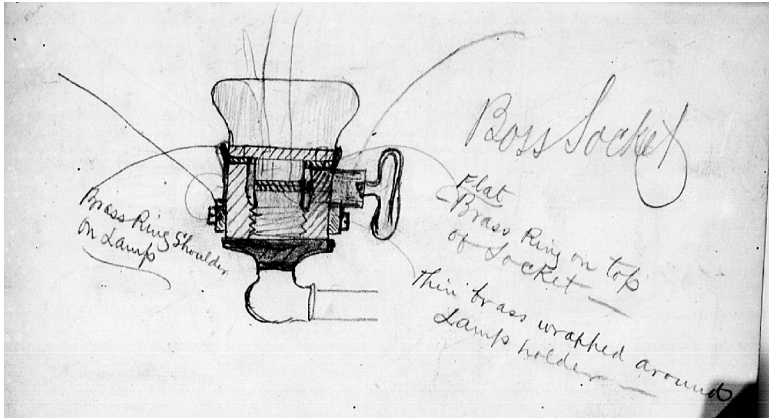 Boss Socket
Brass Ring Shoulder
On Lamp
Flat
Brass Ring on top
of Socket —
Thin brass wrapped around
Lamp holder —